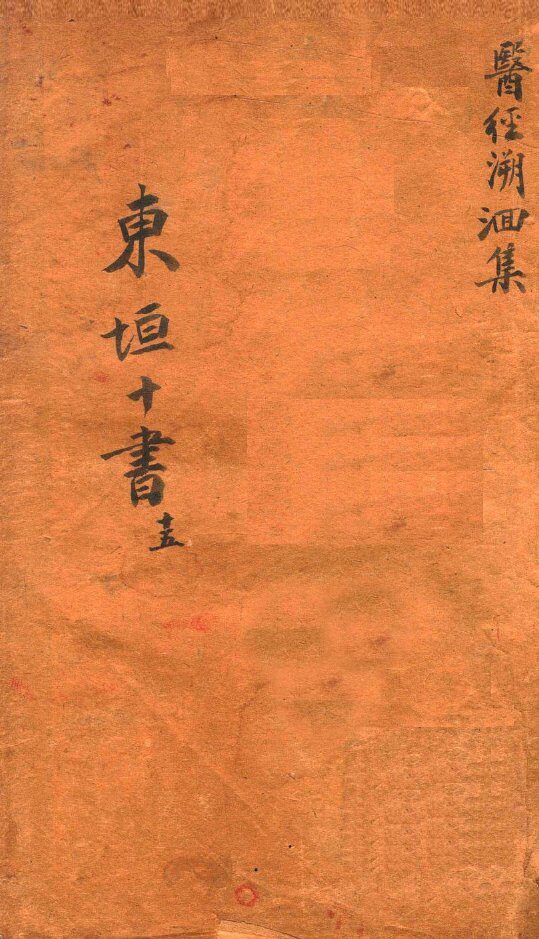 醫經溯洄集
東垣十書 十五